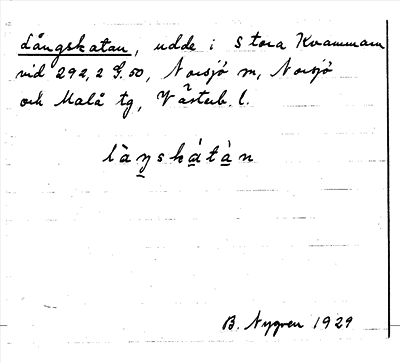 Långskatan, udde i Stora Kvammarn
vid 292,2 G.50, Norsjö sn, Norsjö
och Malå tg, Västerb. l.
làŋskátàn
B. Nygren 1929